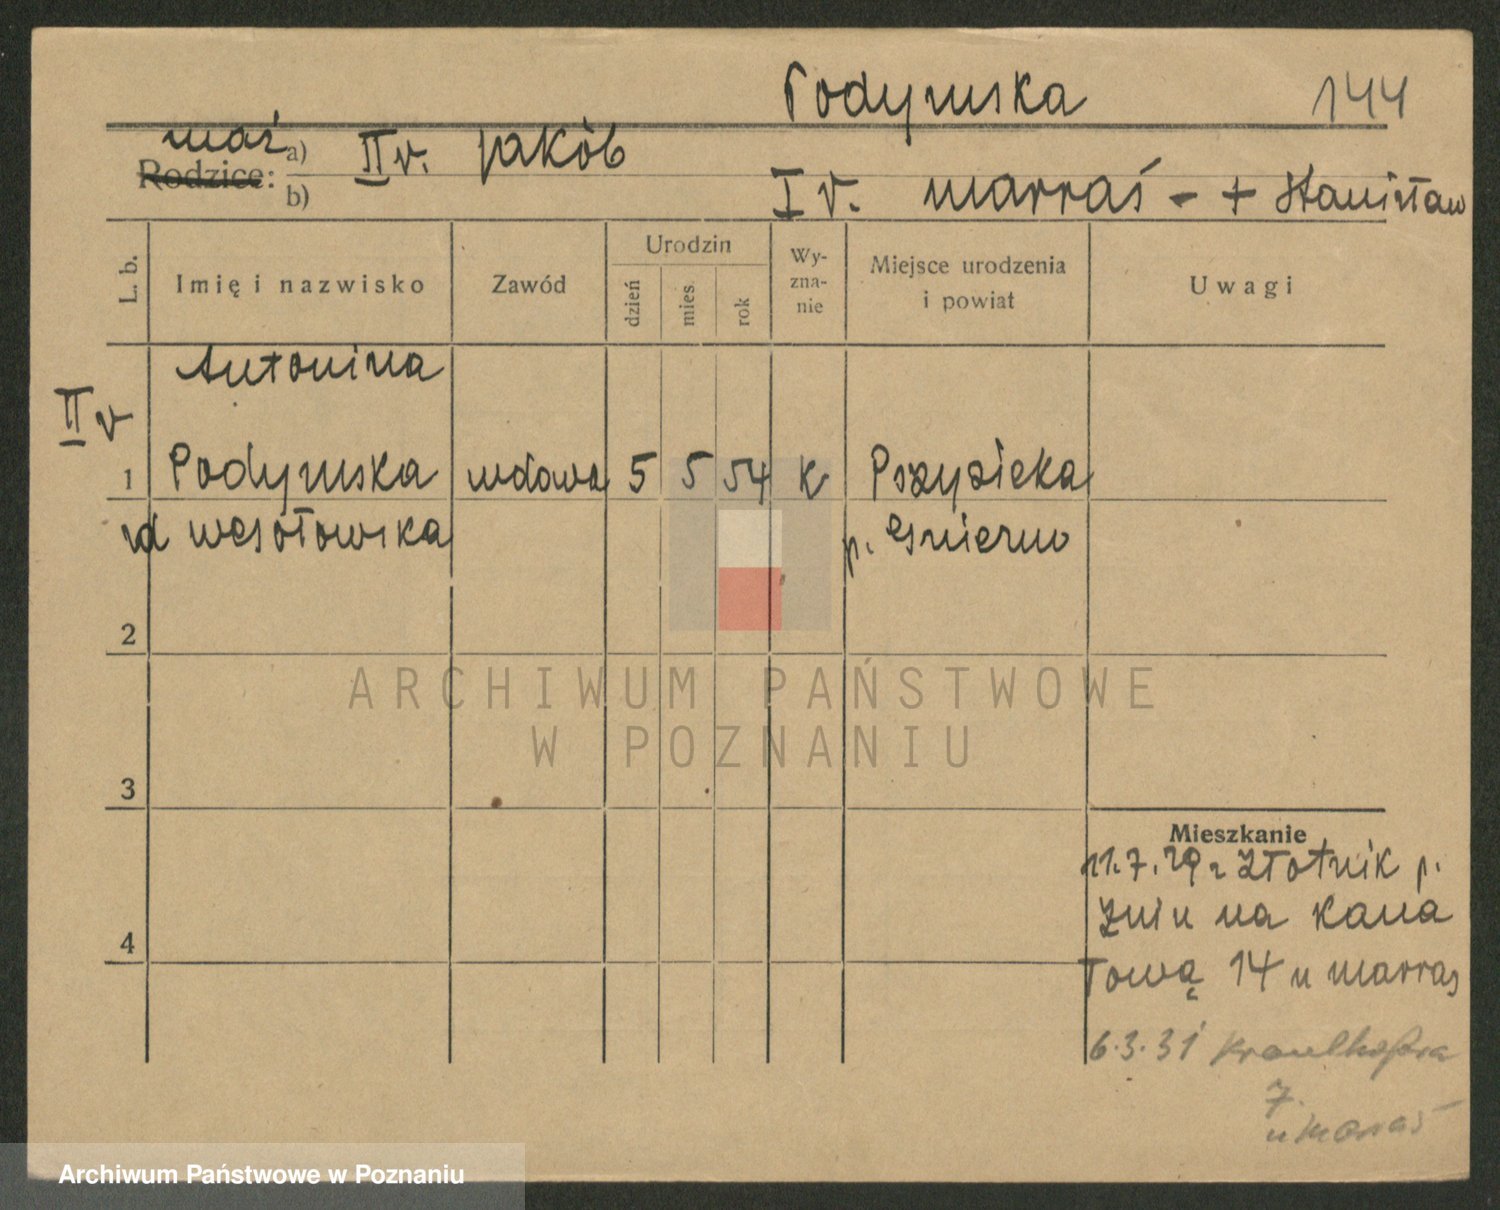 Podymska 144
mąż a) II v. Jakób
Rodzice:
b) I v. Marraś - + Stanisław
L. b. Imię i nazwisko Zawód Urodzin dzień mies. rok Wy-zna-nie Miejsce urodzenia i powiat Uwagi
Antonina
II v
1 Podymska wdowa 5 5 54 K
zd Wesołowska p. Gniezno
2
ARCHIWUM PAŃSTWOWE
W POZNANIU
3
Mieszkanie
11.7.29 z Złotnik p.
Żnin na Kana
4
łową 14 u Marraś
6.3.31
7.
u Marraś
Archiwum Państwowe w Poznaniu